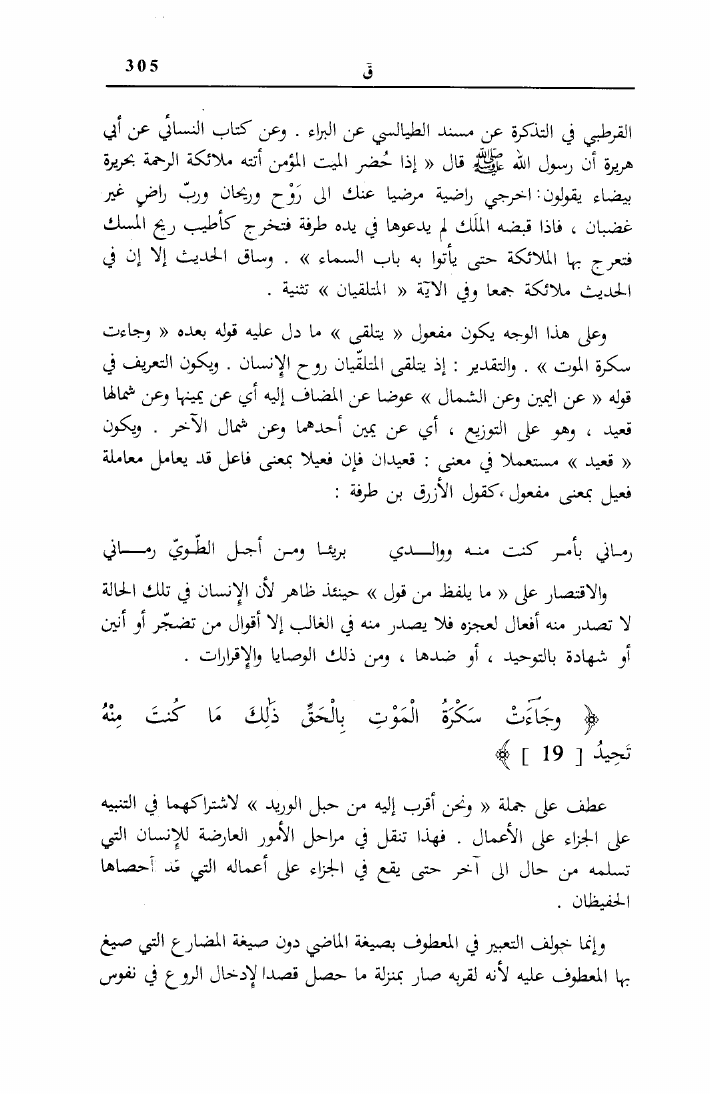 305
ق
القرطبي في التذكرة عن مسند الطيالسي عن البراء . وعن كتاب النسائي عن أبي
هريرة أن رسول الله ﷺ قال « إذا حُضر الميت المؤمن أتته ملائكة الرحمة بحريرة
بيضاء يقولون: اخرجي راضية مرضيا عنك الى رَوْح وريحان وربّ راض غير
غضبان ، فاذا قبضه الملَك لم يدعوها في يده طرفة فتخرج كأطيب ريح المسك
فتعرج بها الملائكة حتى يأتوا به باب السماء » . وساق الحديث إلا إن في
الحديث ملائكة جمعا وفي الآية « المتلقيان » تثنية .
وعلى هذا الوجه يكون مفعول « يتلقى » ما دل عليه قوله بعده « وجاءت
سكرة الموت » . والتقدير : إذ يتلقى المتلقّيان روح الإنسان . ويكون التعريف في
قوله « عن اليمين وعن الشمال » عوضا عن المضاف إليه أي عن يمينها وعن شمالها
قعيد ، وهو على التوزيع ، أي عن يمين أحدهما وعن شمال الآخر . ويكون
« قعيد » مستعملا في معنى : قعيدان فإن فعيلا بمعنى فاعل قد يعامل معاملة
فعيل بمعنى مفعول، كقول الأزرق بن طرفة :
رماني بأمر كنت منه ووالدي بريئا ومن أجل الطّويّ رماني
والاقتصار على « ما يلفظ من قول » حينئذ ظاهر لأن الإنسان في تلك الحالة
لا تصدر منه أفعال لعجزه فلا يصدر منه في الغالب إلا أقوال من تضجّر أو أنين
أو شهادة بالتوحيد ، أو ضدها ، ومن ذلك الوصايا والإقرارات .
﴿ وَجَآءَتْ سَكْرَةُ الْمَوْتِ بِالْحَقِّ ذَٰلِكَ مَا كُنتَ مِنْهُ
تَحِيدُ [ 19 ] ﴾
عطف على جملة « ونحن أقرب إليه من حبل الوريد » لاشتراكهما في التنبيه
على الجزاء على الأعمال . فهذا تنقل في مراحل الأمور العارضة للإنسان التي
تسلمه من حال الى آخر حتى يقع في الجزاء على أعماله التي قد أحصاها
الحفيظان .
وإنما خولف التعبير في المعطوف بصيغة الماضي دون صيغة المضارع التي صيغ
بها المعطوف عليه لأنه لقربه صار بمنزلة ما حصل قصدا لإدخال الروع في نفوس